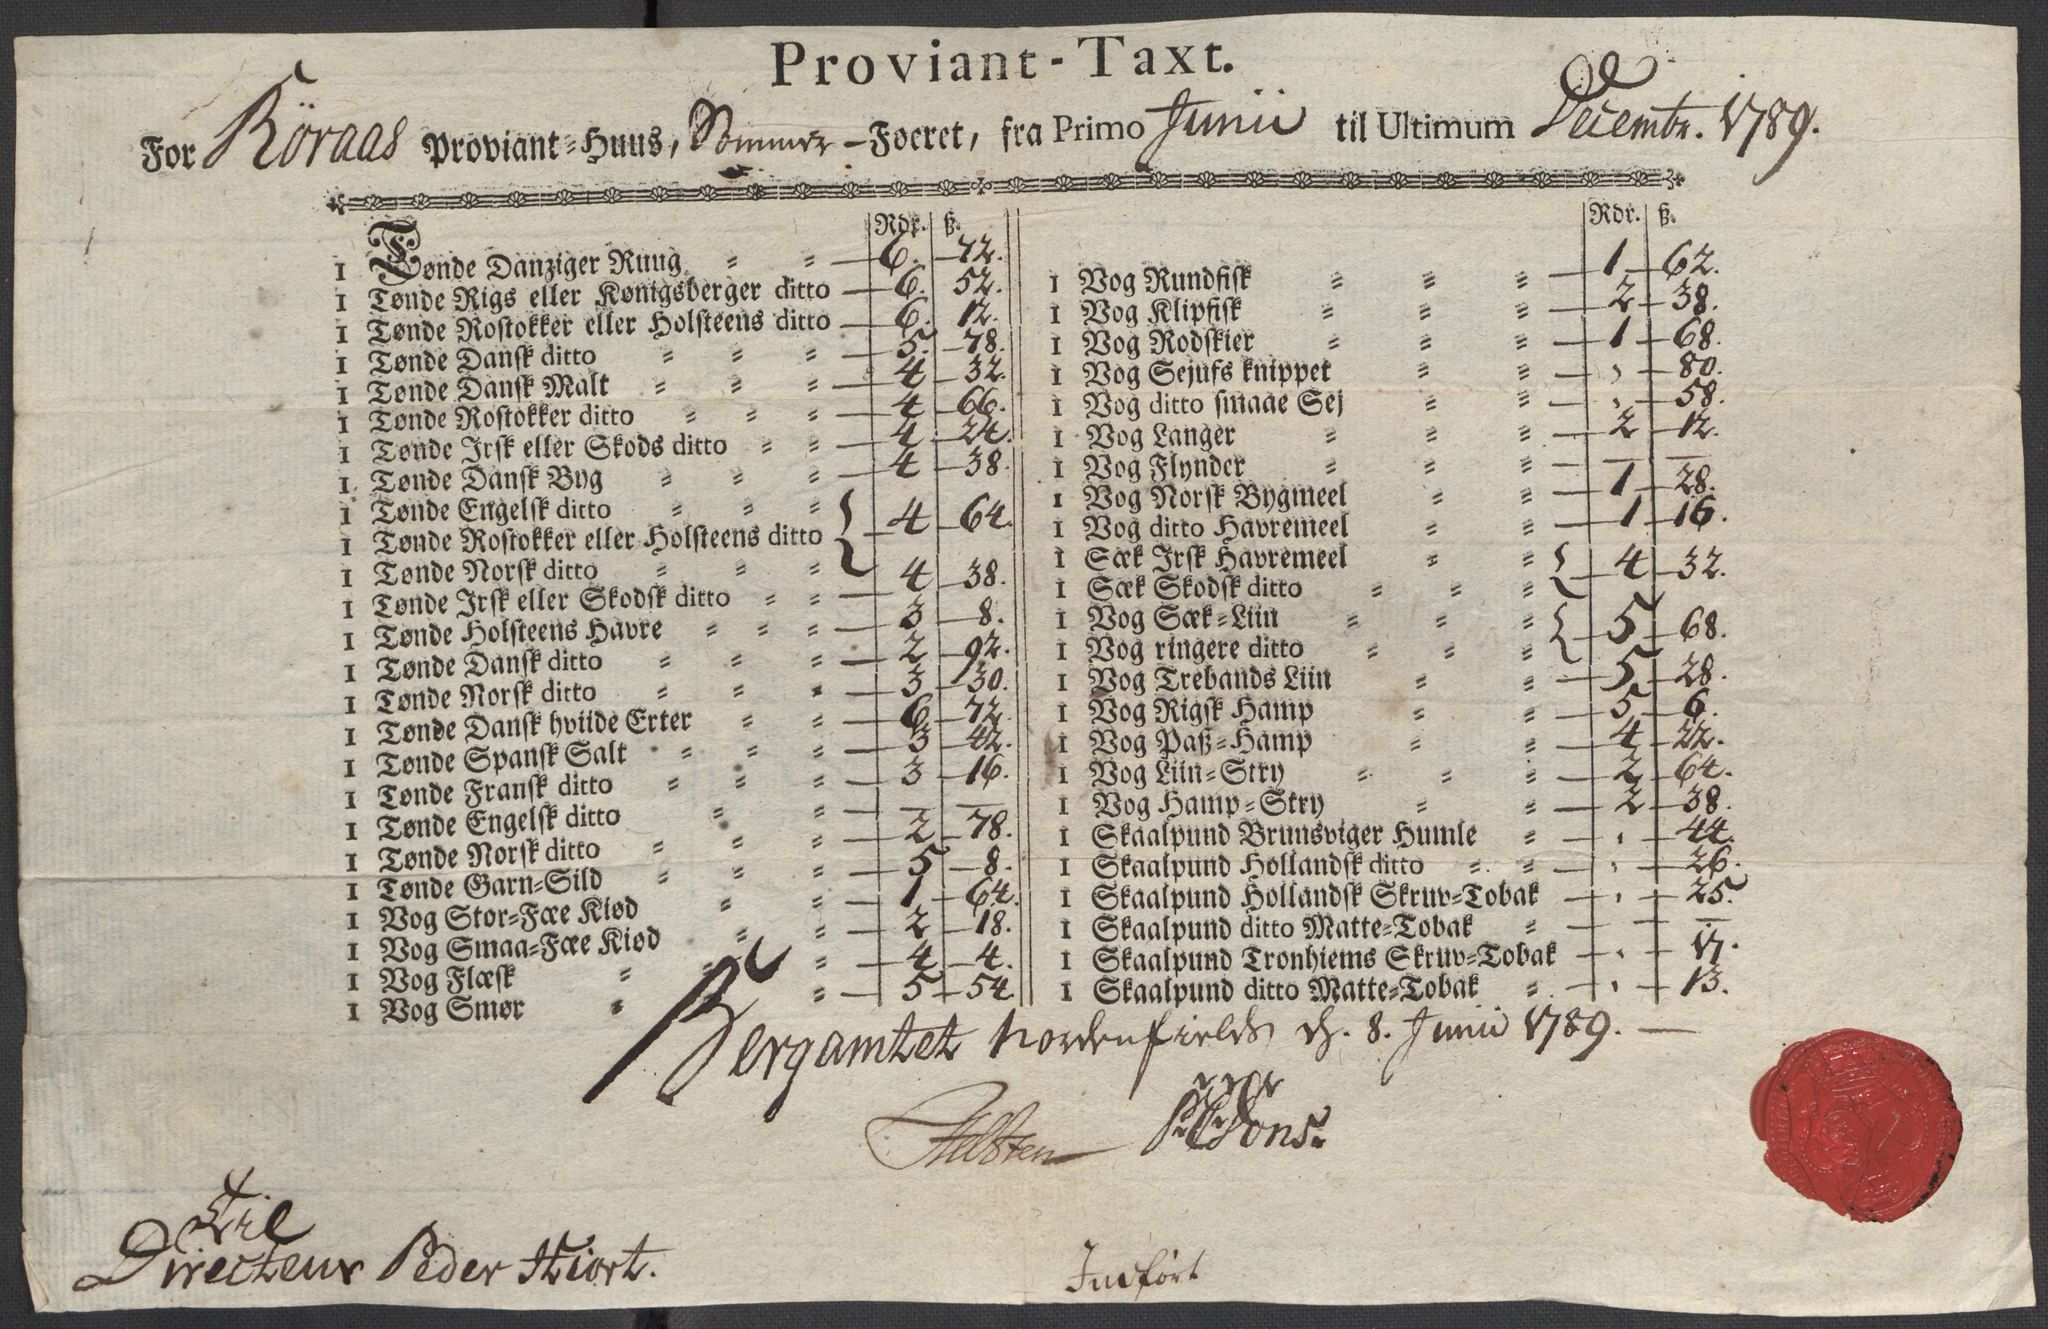 Proviant-Taxt.
For Röraas Proviant-Huus, Sommer-Foeret, fra Primo Junii til Ultimum Decembr. 1789.
Rdr. ß.
1 Tønde Danziger Ruug 6. 72.
1 Tønde Rigs eller Kønigsberger ditto 6. 52.
1 Tønde Rostokker eller Holsteens ditto 6. 12.
1 Tønde Dansk ditto 5. 78.
1 Tønde Dansk Malt 4 32.
1 Tønde Rostokker ditto 4 66.
1 Tønde Irsk eller Skods ditto 4 24.
1 Tønde Dansk Byg 4 38.
1 Tønde Engelsk ditto
1 Tønde Rostokker eller Holsteens ditto } 4 64.
1 Tønde Norsk ditto
1 Tønde Irsk eller Skodsk ditto 4 38.
1 Tønde Holsteens Havre 3 8.
1 Tønde Dansk ditto 2 92.
1 Tønde Norsk ditto 3 30.
1 Tønde Dansk hviide Erter 6 72.
1 Tønde Spansk Salt 3 42.
1 Tønde Fransk ditto 3 16.
1 Tønde Engelsk ditto — —
1 Tønde Norsk ditto 2 78.
1 Tønde Garn-Sild 5 8.
1 Vog Stor-Fæe Kiød 1 64.
1 Vog Smaa-Fæe Kiød 2 18.
1 Vog Flæsk 4 4.
1 Vog Smør 5 54.
Rdr. ß.
1 Vog Rundfisk 1 62.
1 Vog Klipfisk 2 38.
1 Vog Rodskier 1 68.
1 Vog Sejufs knippet 80.
1 Vog ditto smaae Sej 58.
1 Vog Langer 2 12.
1 Vog Flynder — —
1 Vog Norsk Bygmeel 1 28.
1 Vog ditto Havremeel 1 16.
1 Sæk Irsk Havremeel
1 Sæk Skodsk ditto } 4 32.
1 Vog Sæk-Liin
1 Vog ringere ditto } 5 68.
1 Vog Trebands Liin 5 28.
1 Vog Rigsk Hamp 5 6.
1 Vog Paß-Hamp 4 22.
1 Vog Liin-Stry 2 64.
1 Vog Hamp-Stry 2 38.
1 Skaalpund Brunsviger Humle 44.
1 Skaalpund Hollandsk ditto 26.
1 Skaalpund Hollandsk Skruv-Tobak 25.
1 Skaalpund ditto Matte-Tobak —
1 Skaalpund Tronhiems Skruv-Tobak 17.
1 Skaalpund ditto Matte-Tobak 13.
Bergamtet Nordenfields d. 8. Junii 1789.
Til
Directeur Peder Hiort.
Indført